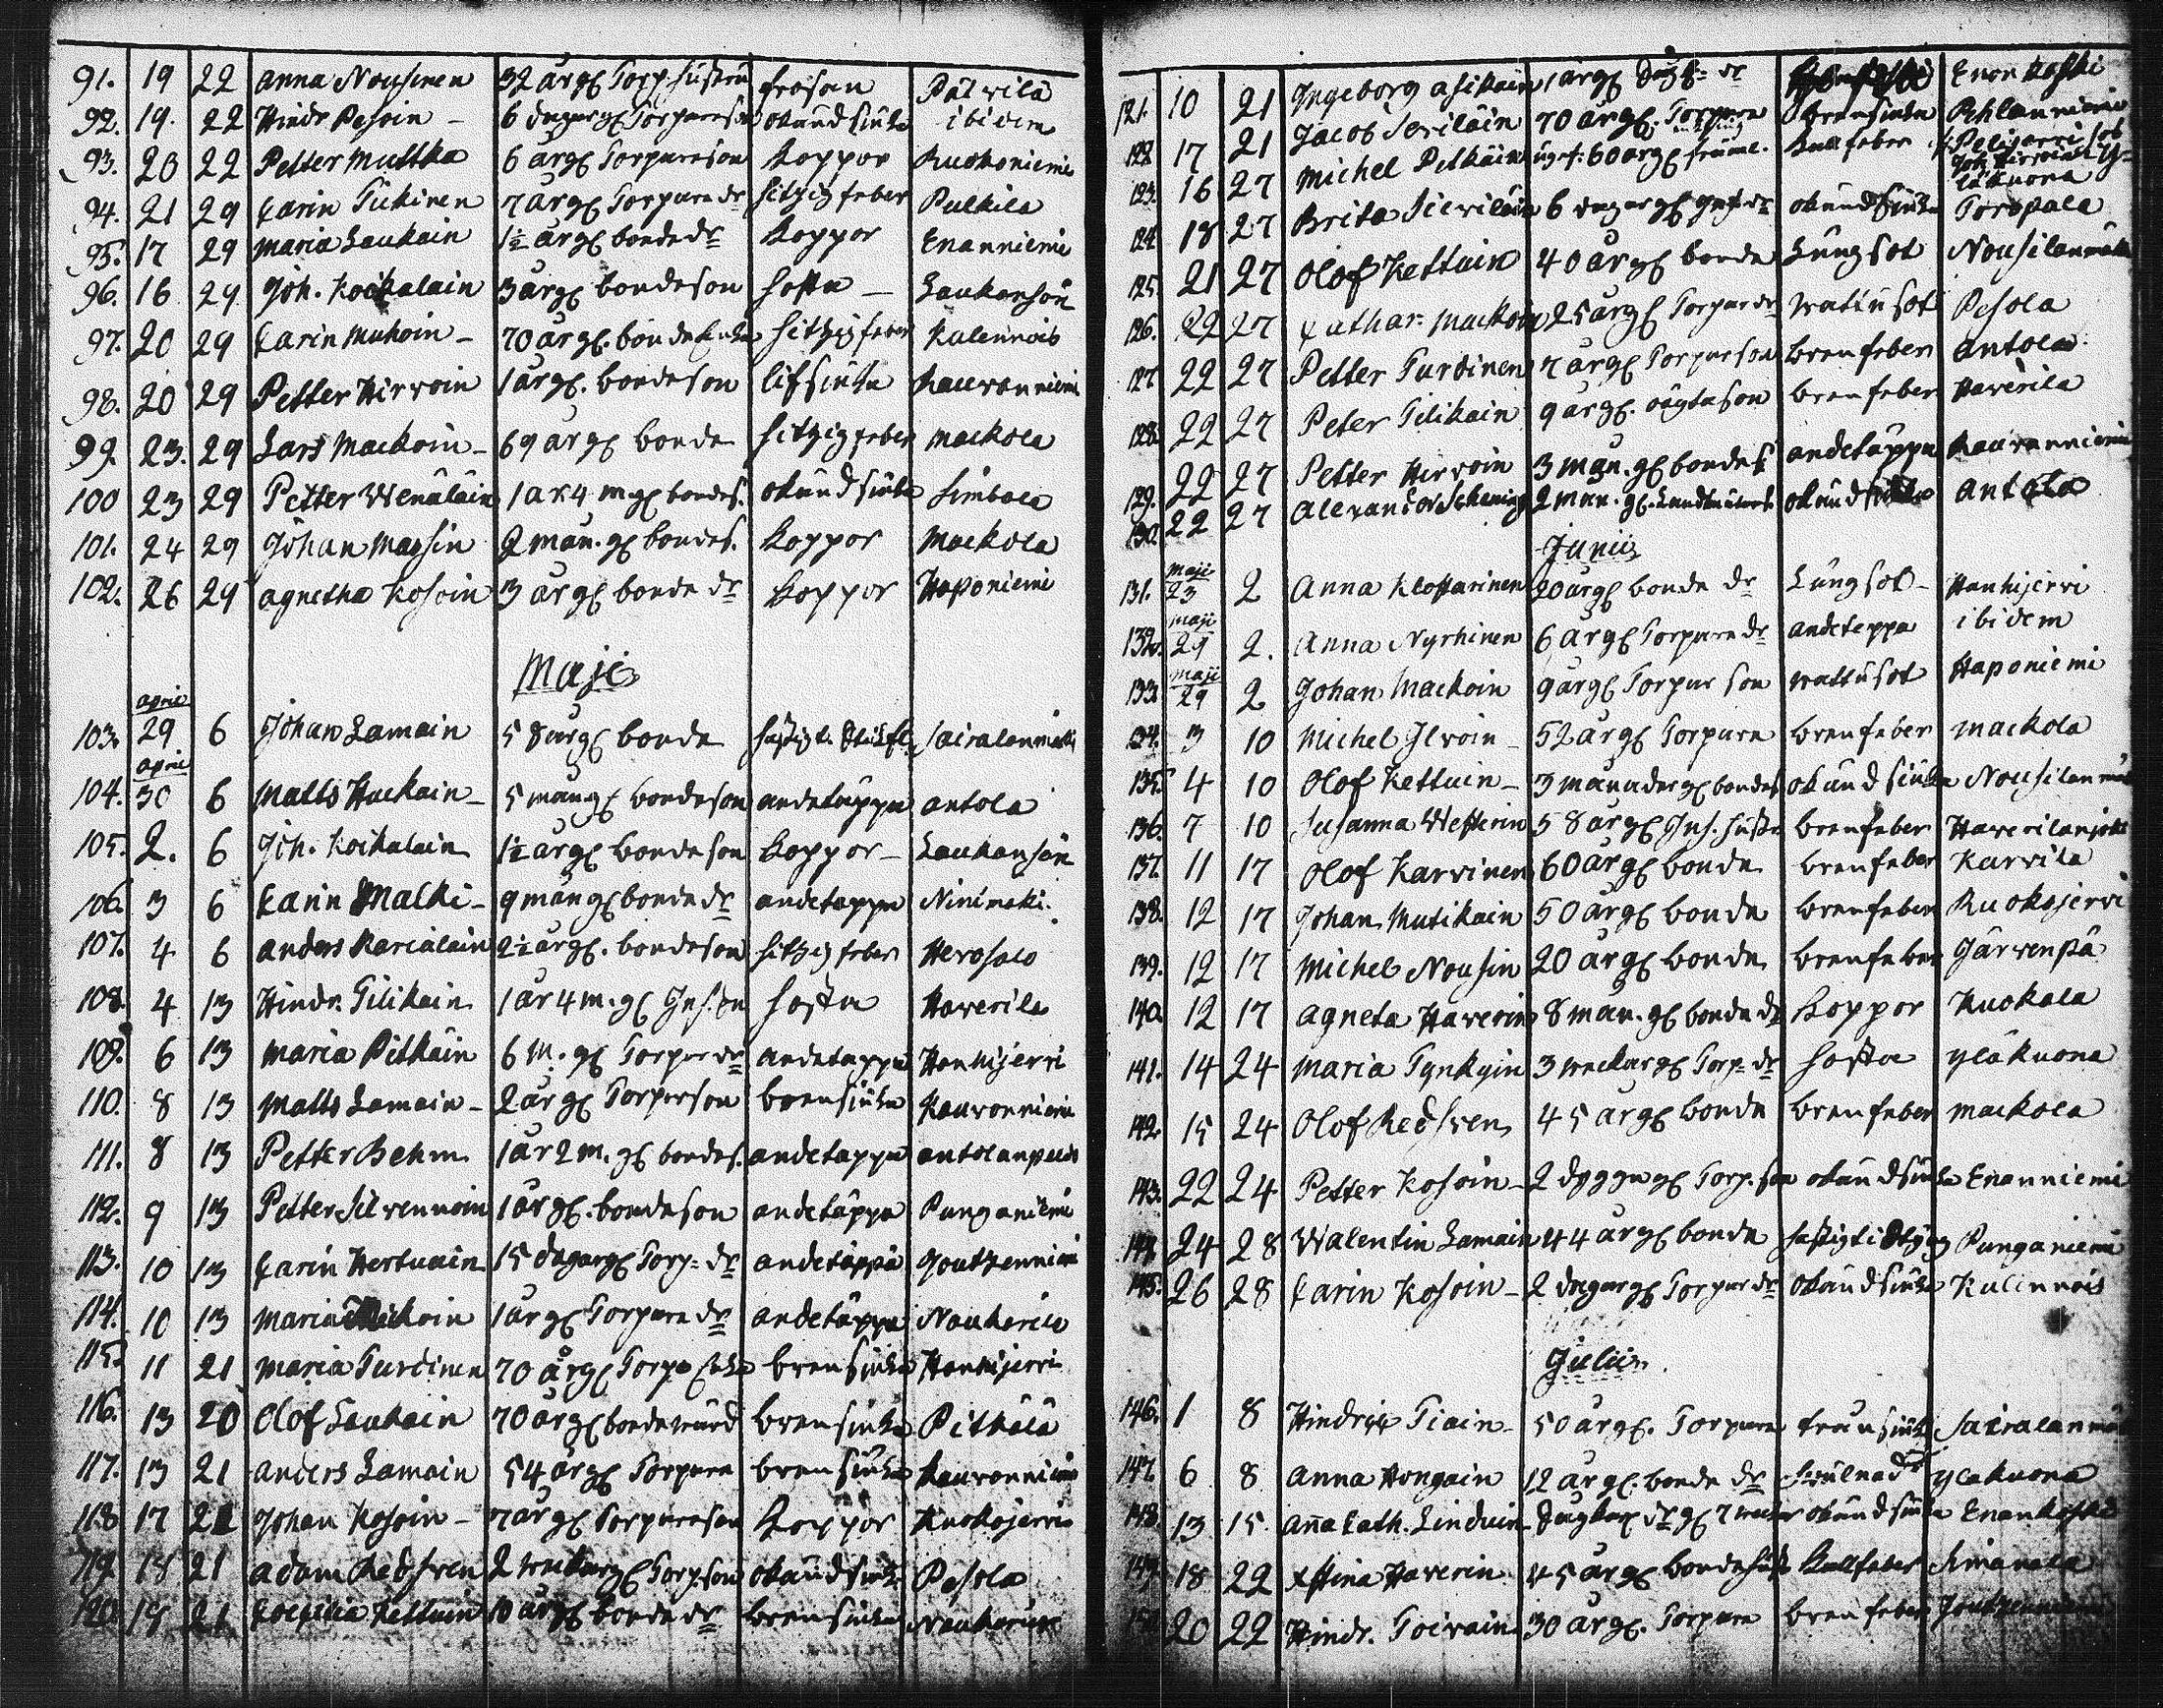 91. 19 22 Anna Nousinen 32 årg Torp. hustru frosan Pälvilä
92. 19. 22 Hindr Pesoin – 6 dagar g Torpareson okänd siuka ibidem
93. 20 22 Petter Muttka 6 årg Torpareson Koppor Ruokoniemi
94. 21 29 Carin Tickinen 7 årg Torpare dr hitzig feber Pulkila
95. 17 29 Maria Laukain 1½ årg bonde dr Koppor Enanniemi
96. 16 29 Joh. Kockalain 3 årg bondeson hosta – Laukansari
97. 20 29 Carin Muhoin – 70 årg. bonde Enka hitzig feber Kulennois
98. 20 29 Petter Hirvoin 1 årg. bondeson lifsiuka Rauvanniemi
99. 23. 29 Lars Mackoin – 69 årg bonde hitzig feber Mackola
100 23 29 Petter Wenäläin 1 år 4 m. g bondes. okänd siuka Simbala
101. 24 29 Johan Massin 2 mån. g bondes. Koppor Mackola
102. 26 29 Agnetha Kosoin 3 årg bonde dr Koppor Haponiemi
Maji
april
103. 29 6 Johan Lamain 58 årg bonde Sairalanmäki
april
104. 30 6 Matts Hackain – 5 mån g bondeson andetäppa Antola
105. 2. 6 Joh. Kockalain 1½ årg bondeson Koppor – Laukansari
106. 3 6 Carin Malki – 9 mån g bonde dr andetäppa Ninimeki.
107. 4 6 Anders Karialain 2½ årg. bondeson hitzig feber Herosalo
108. 4 13 Hindr. Tilikain 1 år 4 m. g Inh. son hosta Haverila
109. 6 13 Maria Pitkäin 6 m. g Torpar dr andetäppa Hanhijervi
110. 8 13 Matts Lamain – 2 årg Torparson brensiuka Rauvanniemi
111. 8 13 Petter Behm 1 år 2 m. g bondes. andetäppa Antolanpelds
112. 9 13 Petter Silvennoin 1 årg. bondeson andetäppa Punganiemi
113. 10 13 Carin Hertuain 15 dagar g Torp. dr andetäppa Joutzenniemi
114. 10 13 Maria Mackoin 1 årg Torpare dr andetäppa Naukarila
115. 11 21 Maria Turdinen 70 årg Torpa Enka brensiuka Hanhijervi
116. 13 20 Olof Laukain 70 årg bonde brensiuka Pitkälä
117. 13 21 Anders Lamain 54 årg Torpare brensiuka Rauvanniemi
118 17 21 Johan Kosoin – 7 årg Torpareson Koppor Ruokojervi
119. 18 21 Adam Redsven 2 weckar g Torp. son okänd siuka Pesola
120. 19 21 Coecilia Kettuin 10 årg bonde dr brensiuka Naukarila
121. 10 21 Ingeborg Asikain 1 årg dr Enonkoski
122. 17 21 Jacob Seviläin 70 årg. Torpare brensiuka Pihlanniemi
123. 16 27 Michel Pitkäin 60 årg Kallfeber Peligerri
Yläkuona
124. 18 27 Brita Sieviläin 6 dagar g dr okänd siuka Toropala
125. 21 27 Olof Kettuin 40 årg bonde Lungsot Nousilanmäki
126. 22 27 Cathar. Mackoin 25 årg Torpar dr wattusot Pesola
127. 22 27 Petter Turdinen 7 årg Torparson brenfeber Antola
128. 22 27 Peter Tilikain 9 årg. son brenfeber Haverila
129. 22 27 Petter Hirvoin 3 mån. g bondes andetäppa Rauvanniemi
130. 22 27 Alexander 2 mån. g. okänd siuka Antola
Junii
Maji
131. 23 2 Anna Klottarinen 20 årg bonde dr Lungsot – Hanhijervi
Maji
132. 29 2. Anna Nyrhinen 6 årg Torpare dr andeteppa ibidem
Maji
133. 29 2 Johan Mackoin 9 årg Torpar son wattusot Haponiemi
134. 3 10 Michel Ilvoin – 52 årg Torpare brenfeber Mackola
135. 4 10 Olof Kettuin – 3 månader g bondes okänd siuka Nousilanmäki
136. 7 10 Susanna Westerin 58 årg Inh. hustru brenfeber Haverilanjoki
137. 11 17 Olof Karvinen 60 årg bonde brenfeber Karvila
138. 12 17 Johan Mutikain 50 årg bonde brenfeber Ruokojervi
139. 12 17 Michel Nousin 20 årg bonde brenfeber Järvenpä
140. 12 17 Agneta Haverin 8 mån. g bonde dr Koppor Kuokala
141. 14 24 Maria Tynkyin 3 weckar g Torp. dr hosta Yläkuona
142. 15 24 Olof Redsven 45 årg bonde brenfeber Mackola
143. 22 24 Petter Kosoin – 2 dygn g Torp. son okänd siuka Enanniemi
144. 24 28 Walentin Lamain 44 årg bonde hastigt styng Punganiemi
145. 26 28 Carin Kosoin – 2 dagar g Torpar dr okänd siuka Kulennois
Julii
146. 1 8 Hindrich Tiain – 50 årg. Torpare siuka Sairalanmäki
147. 6 8 Anna Hongain 12 årg. bonde dr Yläkuona
148. 13 15 Anna Cath. Linduin g 7 weckor okänd siuka Enankoski
149. 18 22 Xstina Haverin 45 årg bondehust Kallfeber Simanala
150. 20 22 Hindr. Toivain 30 årg. Torpare brenfeber Joutzenniemi